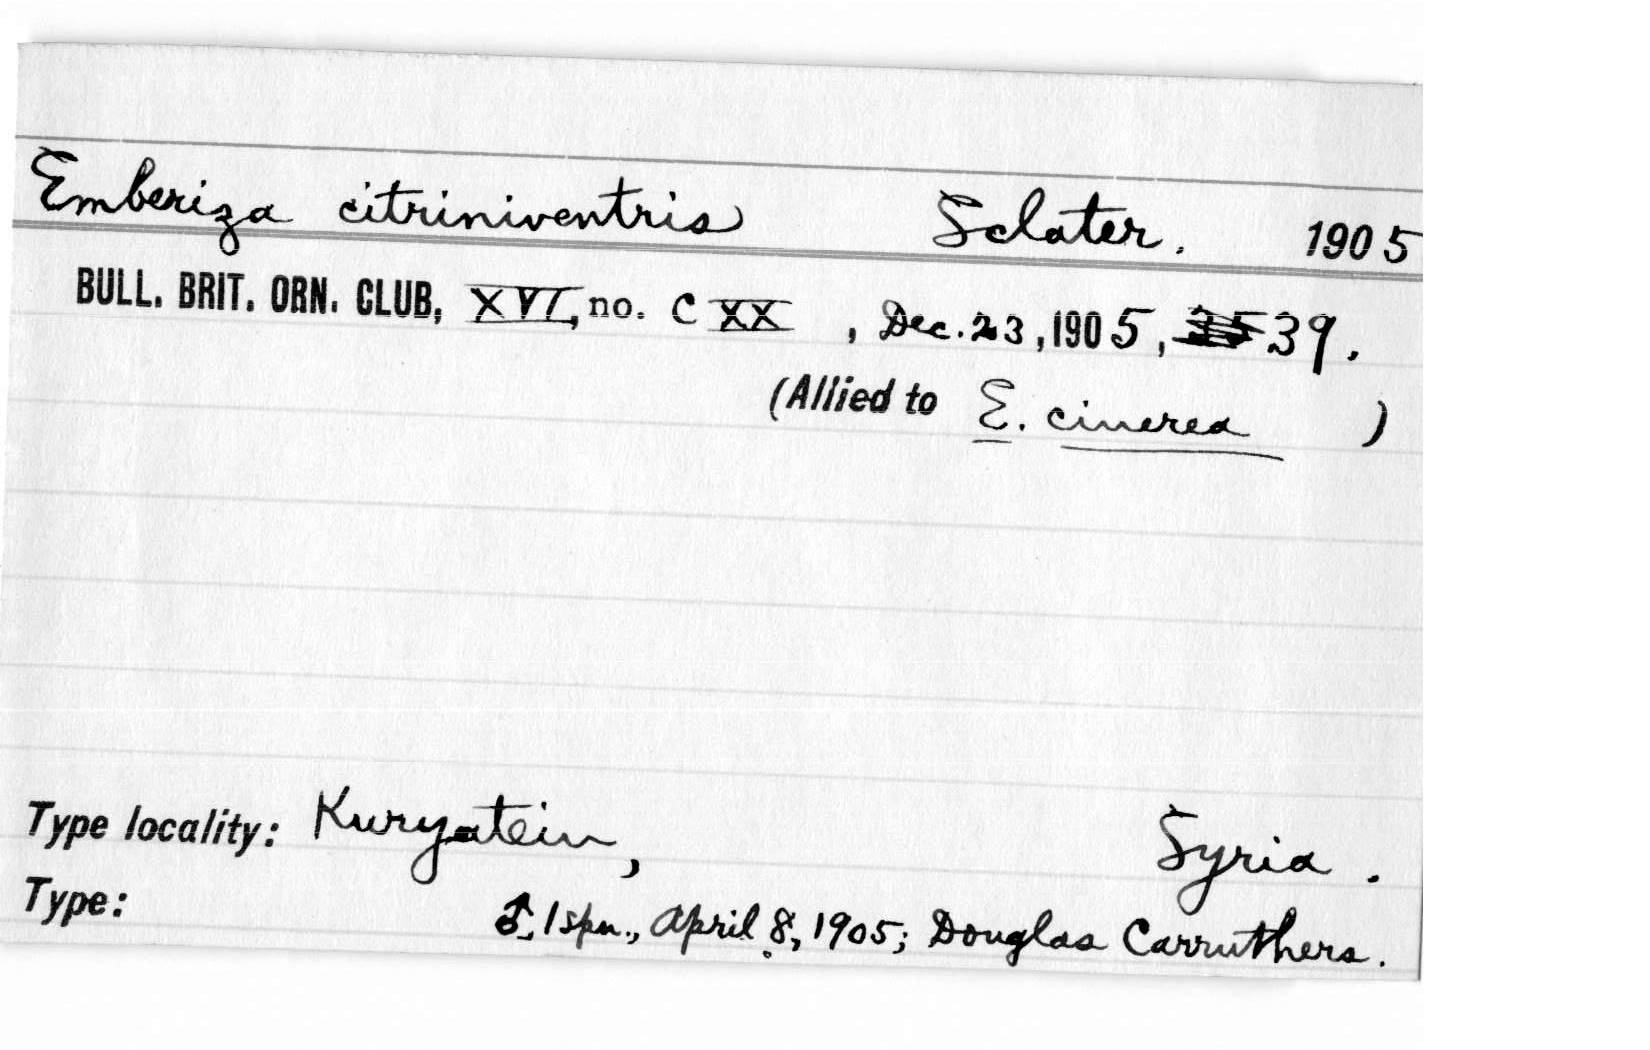 Emberiza citriniventris Sclater. 1905
BULL. BRIT. ORN. CLUB, XVI, no. CXX , Dec. 23, 1905, 39.
(Allied to E. cinerea )
Type locality: Kuryatein, Syria.
Type: ♂, 1 spn., April 8, 1905; Douglas Carruthers.